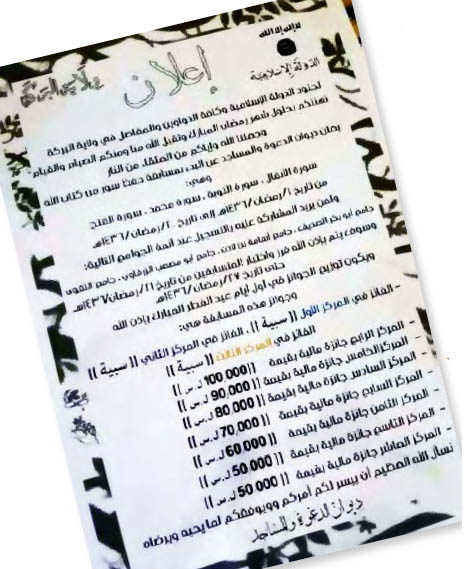 لا إله إلا الله
الدولة الإسلامية
إعلان
ولاية البركة
لجنود الدولة الإسلامية وكافة الدواوين والمفاصل في ولاية البركة
نهنئكم بحلول شهر رمضان المبارك وتقبل الله منا ومنكم الصيام والقيام
وجعلنا الله وإياكم من العتقاء من النار
يعلن ديوان الدعوة والمساجد عن البدء بمسابقة حفظ سور من كتاب الله
وهي:
سورة الأنفال . سورة التوبة . سورة محمد . سورة الفتح
من تاريخ ١/رمضان/١٤٣٦هـ إلى تاريخ ٢٠/رمضان/١٤٣٦هـ
ولمن يريد المشاركة عليه بالتسجيل عند أئمة الجوامع التالية:
جامع أبو بكر الصديق . جامع أسامة بن لادن . جامع أبو مصعب الزرقاوي . جامع التقوى
وسوف يتم بإذن الله فرز واختبار المتسابقين من تاريخ ٢١/رمضان/١٤٣٦هـ
حتى تاريخ ٢٧/رمضان/١٤٣٦هـ
ويكون توزيع الجوائز في أول أيام عيد الفطر المبارك بإذن الله
وجوائز هذه المسابقة هي:
- الفائز في المركز الأول (( سبية )) . الفائز في المركز الثاني (( سبية ))
الفائز في المركز الثالث (( سبية ))
- المركز الرابع جائزة مالية بقيمة ((100,000 ل.س ))
- المركز الخامس جائزة مالية بقيمة (( 90,000 ل.س ))
- المركز السادس جائزة مالية بقيمة (( 80,000 ل.س ))
- المركز السابع جائزة مالية بقيمة (( 70,000 ل.س ))
- المركز الثامن جائزة مالية بقيمة (( 60,000 ل.س ))
- المركز التاسع جائزة مالية بقيمة (( 50,000 ل.س ))
- المركز العاشر جائزة مالية بقيمة (( 50,000 ل.س ))
نسأل الله العظيم أن ييسر لكم أمركم ويوفقكم لما يحبه ويرضاه
ديوان الدعوة والمساجد